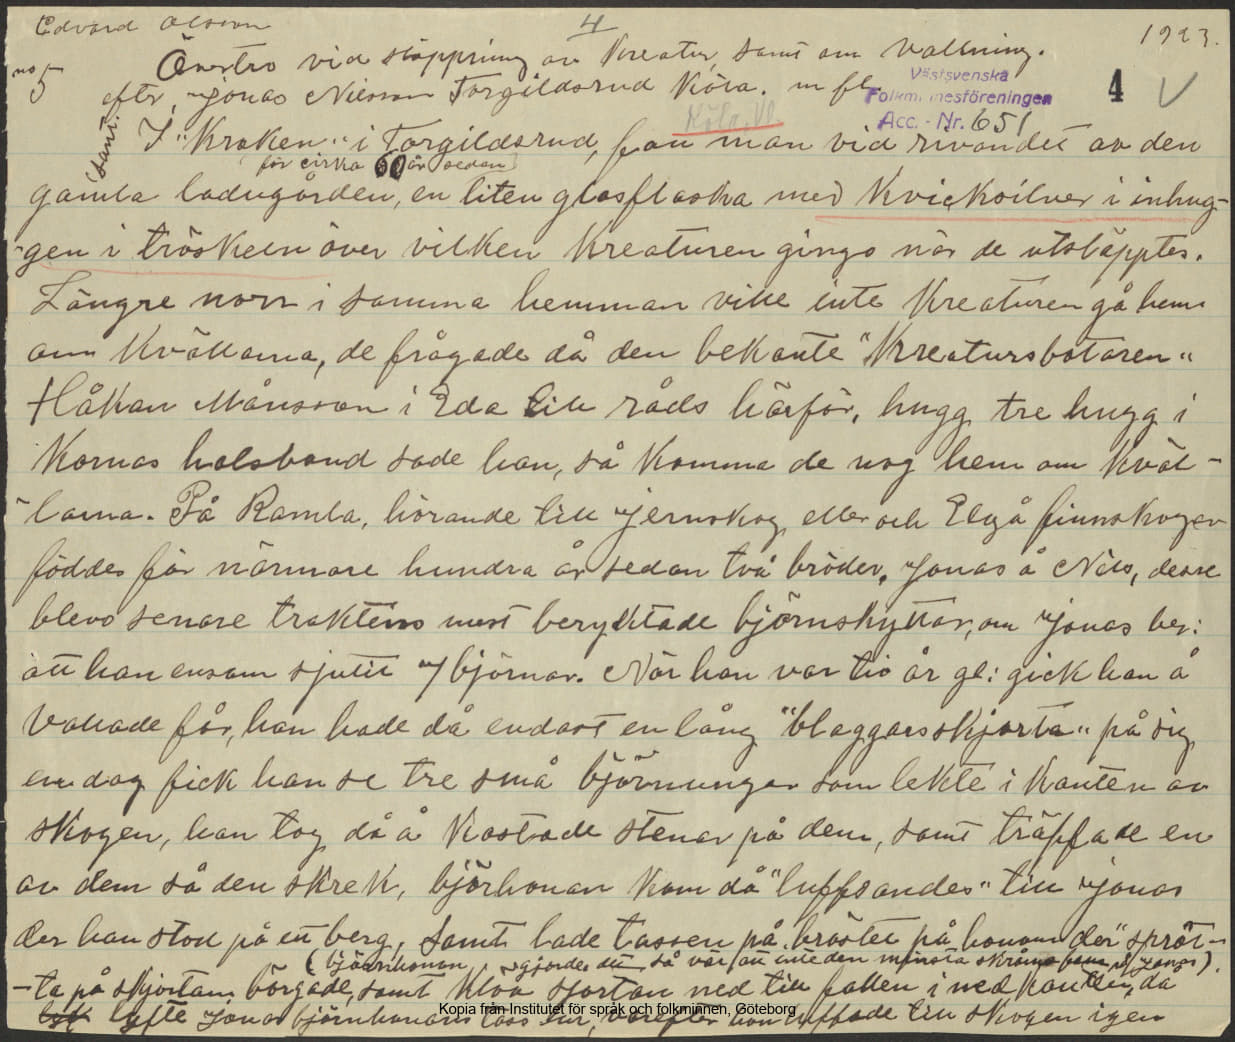 Edvard Olsson 4 1923.
no 5 Övertro vid släppning av kreatur, samt om vallning.
efter Jonas Nilsson Torgildsrud Köla. m fl.
Västsvenska
Folkminnesföreningen
Acc. - Nr. 651
4
Köla, Vl.
(sant.
I "Kroken" i Torgildsrud, fan man vid rivandet av den
för cirka 60 år sedan
gamla ladugården, en liten glasflaska med kvicksilver i inhug-
-gen i tröskeln över vilken kreaturen gingo når de utsläpptes.
Längre norr i samma hemman ville inte kreaturen gå hem
om kvällarna, de frågade då den bekante "Kreatursbotaren"
Håkan Månsson i Eda till råds härför, hugg tre hugg i
kornas halsband sade han, så komma de nog hem om kväl-
-larna. På Ramla, hörande till Jernskog eller och Elgå finnskogar
föddes för närmare hundra år sedan två bröder, Jonas å Nils, desse
blevo senare traktens mest beryktade björnskyttar, om Jonas ber:
att han ensam sjutit 7 björnar. När han var tio år gl: gick han å
vallade får, han hade då endast en lång "blaggarsskjorta" på sig,
en dag fick han se tre små björnungar som lekte i kanten av
skogen, han tog då å kastade stenar på dem, samt träffade en
av dem så den skrek, björhonan kom då "luffsandes" till Jonas
der han stod på ett berg, samt lade tassen på bröstet på honom der "spröt-
(björnhonan gjorde det så var att inte den minsta skråma fanns på Jonas).
-ta på skjortan började, samt klöv sjortan ned till fållen i nedkanten, då
lyfte Jonas björnhonans tass ur, varefter hon luffade till skogen igen
Kopia från Institutet för språk och folkminnen, Göteborg